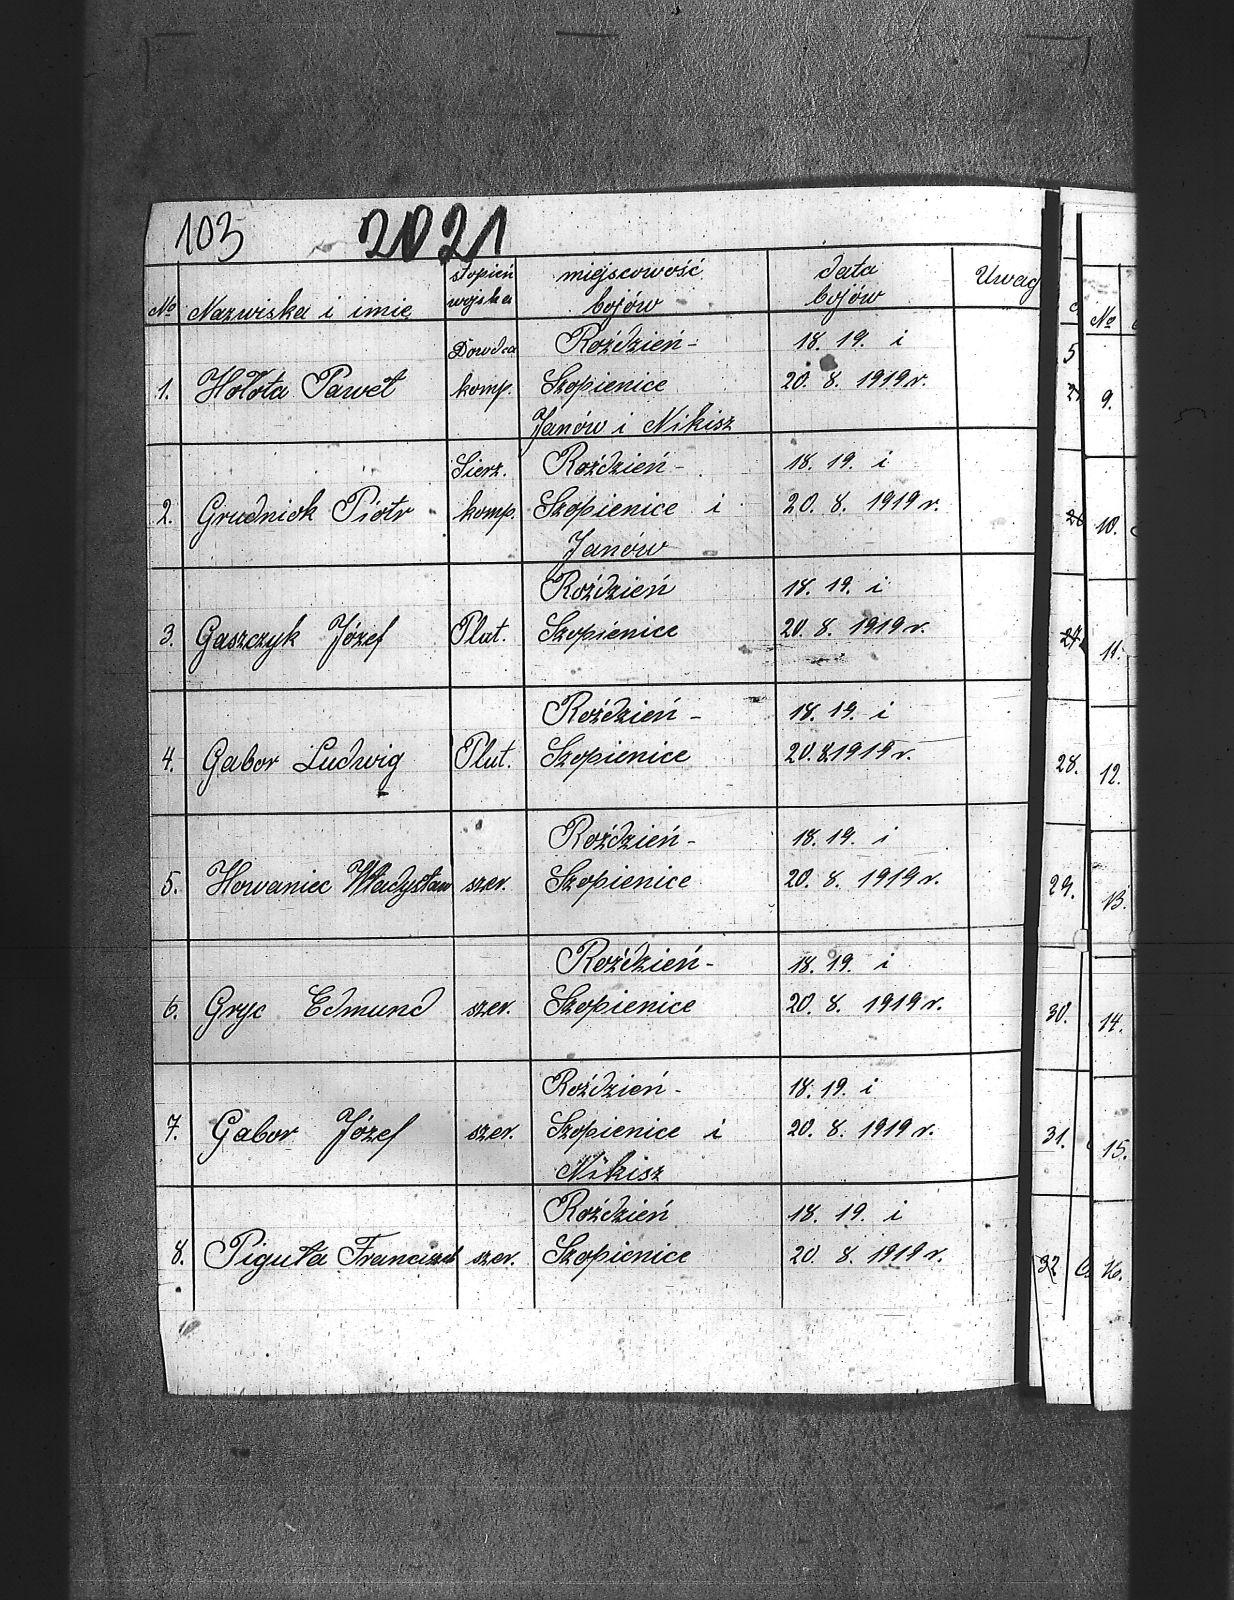 103 2021
No Nazwiska i imię stopień wojska miejscowość bojów data bojów Uwag
Dowdca Roździeń- 18. 19. i
1. Hołota Paweł komp. Szopienice 20. 8. 1919 r.
Janów i Nikisz
Sierż. Roździeń- 18. 19. i
2. Grudniok Piotr komp. Szopienice i 20. 8. 1919 r.
Janów
Roździeń 18. 19. i
3. Gaszczyk Józef Plut. Szopienice 20. 8. 1919 r.
Roździeń- 18. 19. i
4. Gabor Ludwig Plut. Szopienice 20.8.1919 r.
Roździeń- 18. 19. i
5. Howaniec Władysław szer. Szopienice 20. 8. 1919 r.
Roździeń- 18. 19. i
6. Gryc Edmund szer. Szopienice 20. 8. 1919 r.
Roździeń- 18. 19. i
7. Gabor Józef szer. Szopienice i 20. 8. 1919 r.
Nikisz
Roździeń 18. 19. i
8. Piguła Franciszek szer. Szopienice 20. 8. 1919 r.
28.
29.
30.
31.
32
No
9.
10.
11.
12.
13.
14.
15.
16.